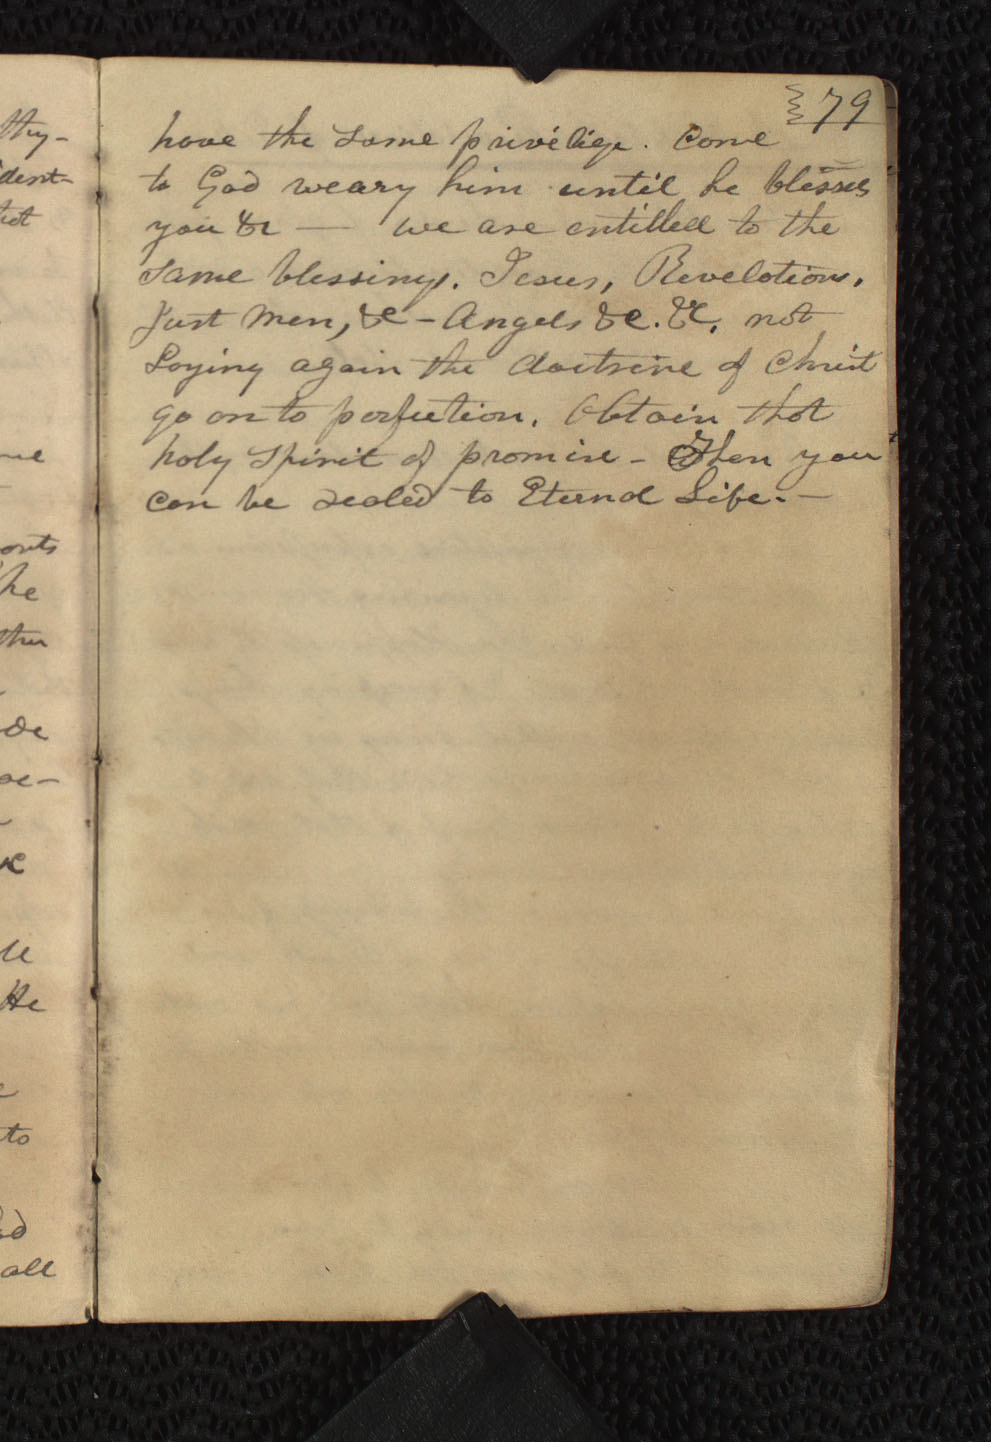 79
have the same privilige. Come
to God weary him until he blesses
you &c — we are entitled to the
same blessings. Jesus, Revelations,
Just Men, &c – Angels &c. &c. not
Laying again the doctrine of Christ
go on to perfection. Obtain that
holy Spirit of promise – Then you
can be sealed to Eternal Life. —
thy-
dent-
he
to
all
He